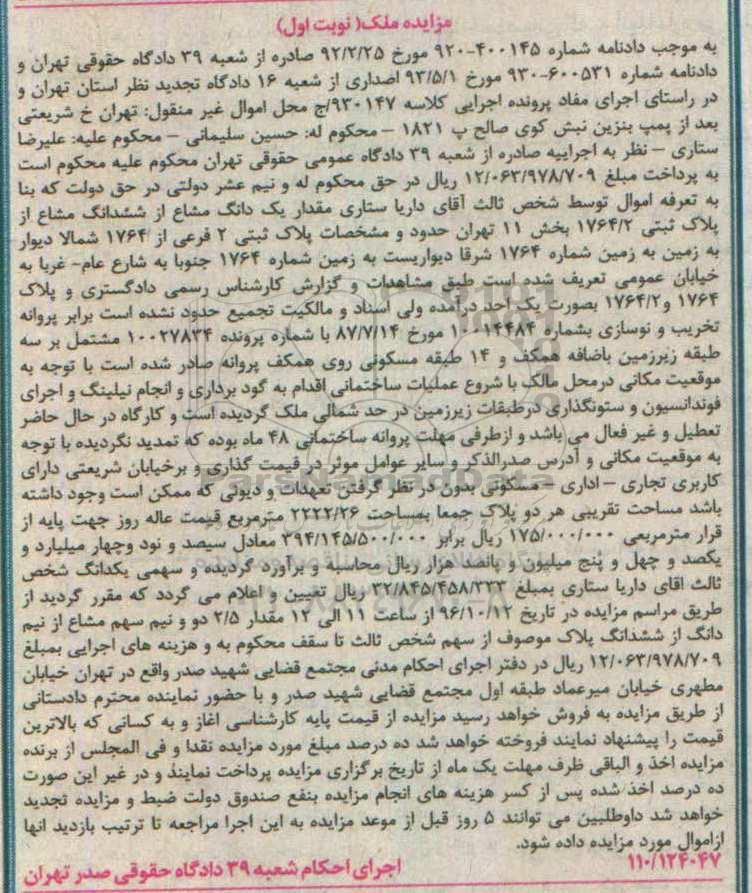 مزایده ملک( نوبت اول)
به موجب دادنامه شماره ۴۰۰۱۴۵-۹۲۰ مورخ ۹۲/۲/۲۵ صادره از شعبه ۳۹ دادگاه حقوقی تهران و
دادنامه شماره ۶۰۰۵۳۱-۹۳۰ مورخ ۹۳/۵/۱ اصداری از شعبه ۱۶ دادگاه تجدید نظر استان تهران و
در راستای اجرای مفاد پرونده اجرایی کلاسه ۹۳۰۱۴۷/ج محل اموال غیر منقول: تهران خ شریعتی
بعد از پمپ بنزین نبش کوی صالح پ ۱۸۲۱ – محکوم له: حسین سلیمانی – محکوم علیه: علیرضا
ستاری – نظر به اجراییه صادره از شعبه ۳۹ دادگاه عمومی حقوقی تهران محکوم علیه محکوم است
به پرداخت مبلغ ۱۲/۰۶۳/۹۷۸/۷۰۹ ریال در حق محکوم له و نیم عشر دولتی در حق دولت که بنا
به تعرفه اموال توسط شخص ثالث آقای داریا ستاری مقدار یک دانگ مشاع از ششدانگ مشاع از
پلاک ثبتی ۱۷۶۴/۲ بخش ۱۱ تهران حدود و مشخصات پلاک ثبتی ۲ فرعی از ۱۷۶۴ شمالا دیوار
به زمین به زمین شماره ۱۷۶۴ شرقا دیواریست به زمین شماره ۱۷۶۴ جنوبا به شارع عام- غربا به
خیابان عمومی تعریف شده است طبق مشاهدات و گزارش کارشناس رسمی دادگستری و پلاک
۱۷۶۴ و۱۷۶۴/۲ بصورت یک احد درآمده ولی اسناد و مالکیت تجمیع حدود نشده است برابر پروانه
تخریب و نوسازی بشماره ۱۰۰۱۴۴۸۴ مورخ ۸۷/۷/۱۴ با شماره پرونده ۱۰۰۲۷۸۳۴ مشتمل بر سه
طبقه زیرزمین باضافه همکف و ۱۴ طبقه مسکونی روی همکف پروانه صادر شده است با توجه به
موقعیت مکانی درمحل مالک با شروع عملیات ساختمانی اقدام به گود برداری و انجام نیلینگ و اجرای
فوندانسیون و ستونگذاری درطبقات زیرزمین در حد شمالی ملک گردیده است و کارگاه در حال حاضر
تعطیل و غیر فعال می باشد و ازطرفی مهلت پروانه ساختمانی ۴۸ ماه بوده که تمدید نگردیده با توجه
به موقعیت مکانی و آدرس صدرالذکر و سایر عوامل موثر در قیمت گذاری و برخیابان شریعتی دارای
کاربری تجاری – اداری – مسکونی بدون در نظر گرفتن تعهدات و دیونی که ممکن است وجود داشته
باشد مساحت تقریبی هر دو پلاک جمعا بمساحت ۲۲۲۲/۲۶ مترمربع قیمت عاله روز جهت پایه از
قرار مترمربعی ۱۷۵/۰۰۰/۰۰۰ ریال برابر ۳۹۴/۱۴۵/۵۰۰/۰۰۰ معادل سیصد و نود وچهار میلیارد و
یکصد و چهل و پنج میلیون و پانصد هزار ریال محاسبه و برآورد گردیده و سهمی یکدانگ شخص
ثالث اقای داریا ستاری بمبلغ ۳۲/۸۴۵/۴۵۸/۳۳۳ ریال تعیین و اعلام می گردد که مقرر گردید از
طریق مراسم مزایده در تاریخ ۹۶/۱۰/۱۲ از ساعت ۱۱ الی ۱۲ مقدار ۲/۵ دو و نیم سهم مشاع از نیم
دانگ از ششدانگ پلاک موصوف از سهم شخص ثالث تا سقف محکوم به و هزینه های اجرایی بمبلغ
۱۲/۰۶۳/۹۷۸/۷۰۹ ریال در دفتر اجرای احکام مدنی مجتمع قضایی شهید صدر واقع در تهران خیابان
مطهری خیابان میرعماد طبقه اول مجتمع قضایی شهید صدر و با حضور نماینده محترم دادستانی
از طریق مزایده به فروش خواهد رسید مزایده از قیمت پایه کارشناسی اغاز و به کسانی که بالاترین
قیمت را پیشنهاد نمایند فروخته خواهد شد ده درصد مبلغ مورد مزایده نقدا و فی المجلس از برنده
مزایده اخذ و الباقی ظرف مهلت یک ماه از تاریخ برگزاری مزایده پرداخت نمایند و در غیر این صورت
ده درصد اخذ شده پس از کسر هزینه های انجام مزایده بنفع صندوق دولت ضبط و مزایده تجدید
خواهد شد داوطلبین می توانند ۵ روز قبل از موعد مزایده به این اجرا مراجعه تا ترتیب بازدید انها
ازاموال مورد مزایده داده شود.
۱۱۰/۱۲۴۰۴۷ اجرای احکام شعبه ۳۹ دادگاه حقوقی صدر تهران
ParsNamadData